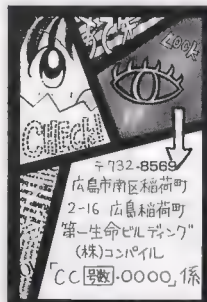 LOOK
CHECK
〒732-8569
広島市南区稲荷町
2-16 広島稲荷町
第一生命ビルディング
(株)コンパイル
「CC号数-0000」係